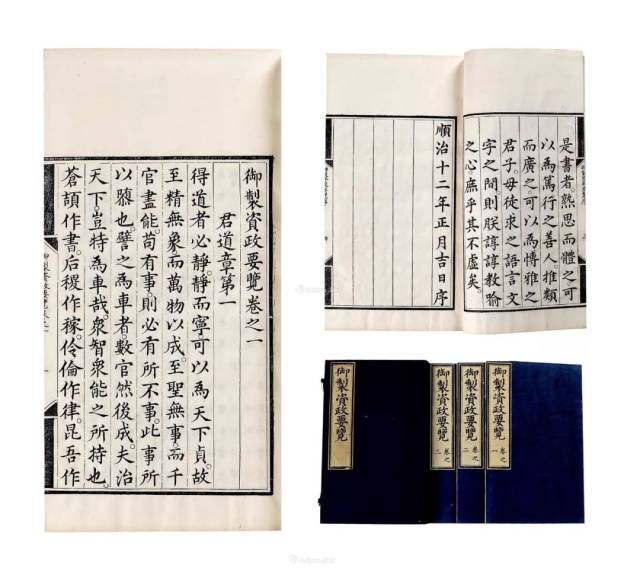 御製資政要覽卷之一
君道章第一
得道者必靜。靜而寧可以為天下貞。故
至精無象而萬物以成。至聖無事。而千
官盡能。苟有事。則必有所不事。此事所
以隳也。譬之為車者數官然後成。夫治
天下豈特為車哉。衆智衆能之所持也。
蒼頡作書。后稷作稼。伶倫作律。昆吾作
是書者。熟思而體之。可
以為篤行之善人。推類
而廣之。可以為博雅之
君子。毋徒求之語言文
字之間。則朕諄諄教喻
之心。庶乎其不虛矣。
順治十二年正月吉日序
御製資政要覽 卷之一
御製資政要覽 卷之二
御製資政要覽 卷之三
御製資政要覽